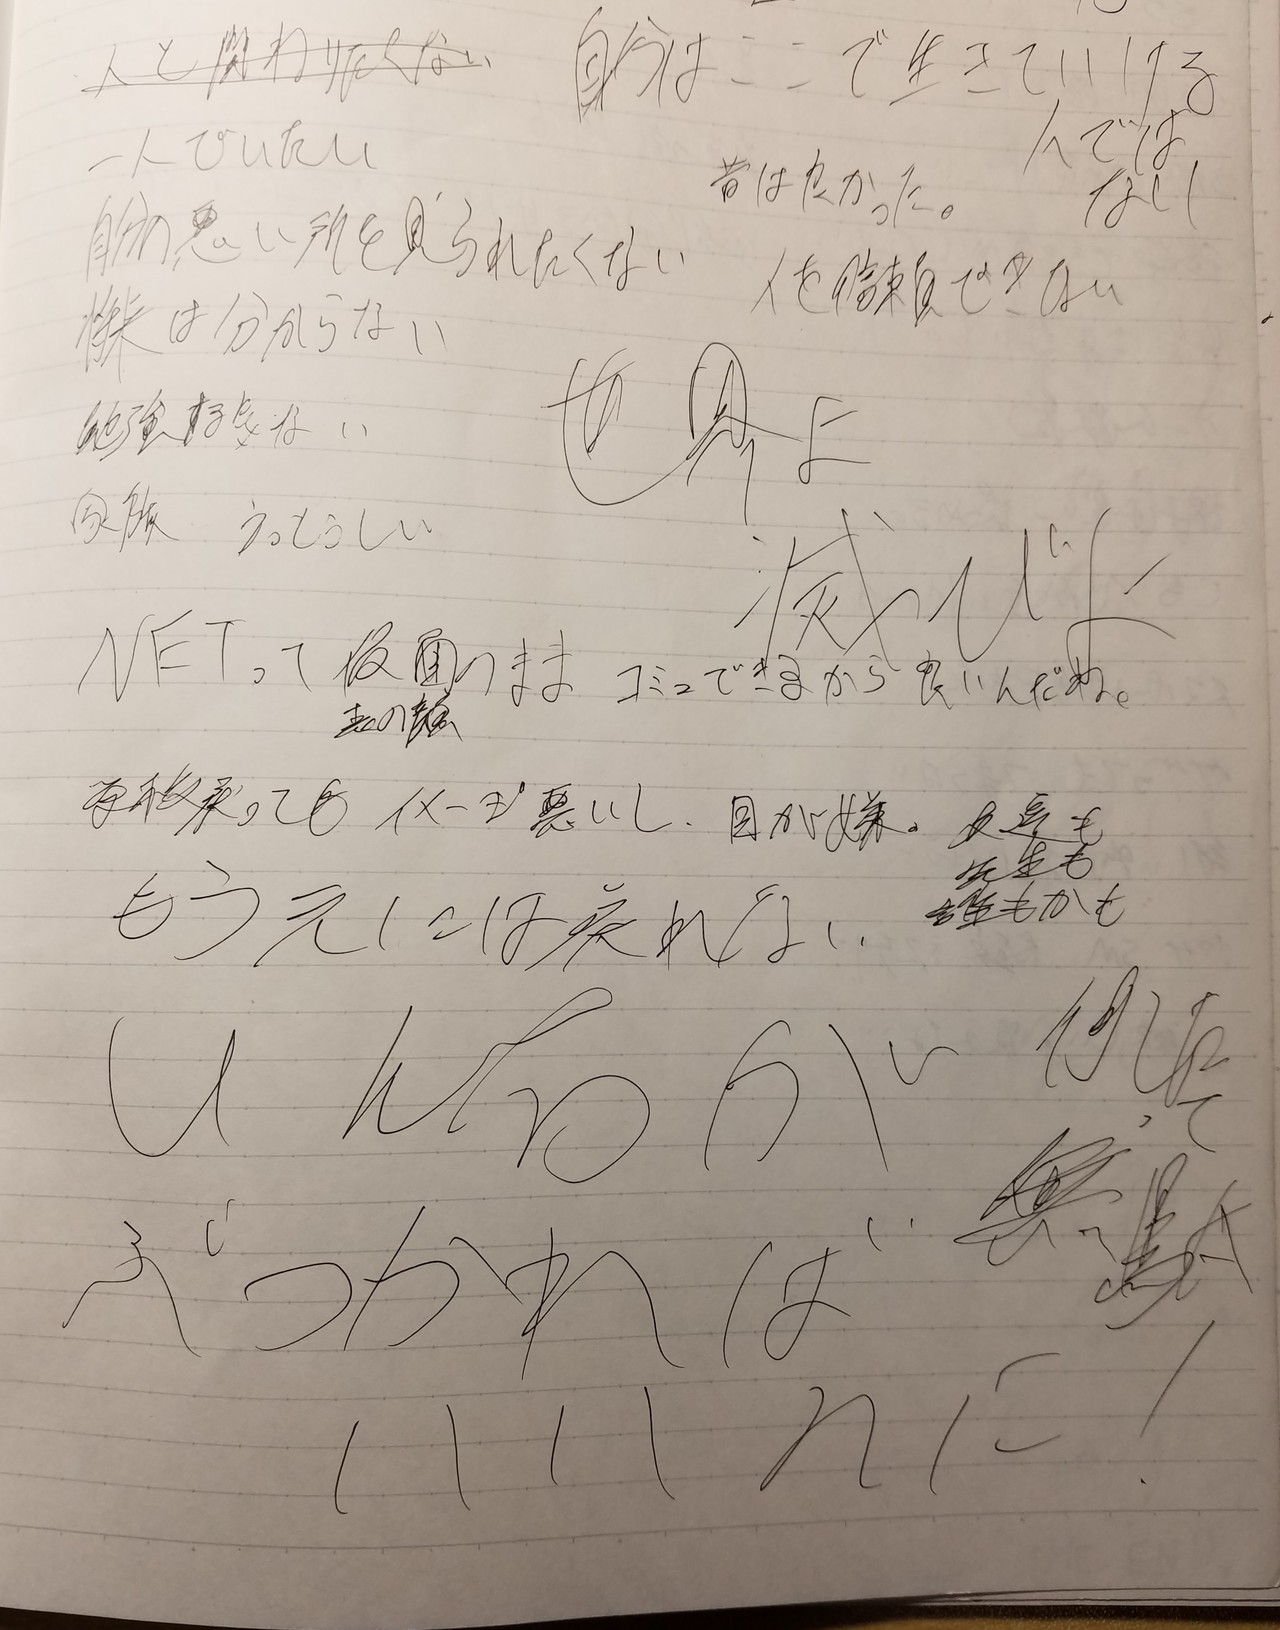 人と関わりたくない
自分はここで生きていける
人では
ない
一人でいたい
昔は良かった。
自分の悪い所を見られたくない
人を信頼できない
株は分からない
世界よ
勉強好きない
家族 うっとうしい
滅びよ
NETって仮面のまま コミュできるから良いんだね。
学校戻っても イメージ悪いし、目が嫌。友達も
先生も
誰もかも
もう元には戻れない。
いん石が
何したって
無駄
ぶつかれば
いいのに!